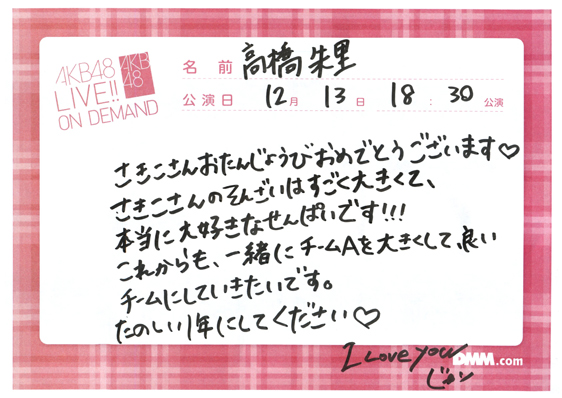 AKB48
LIVE!!
ON DEMAND
AKB
48
名前 高橋朱里
公演日 12月 13日 18:30公演
さきこさんおたんじょうびおめでとうございます♡
さきこさんのそんざいはすごく大きくて、
本当に大好きなせんぱいです!!!
これからも、一緒にチームAを大きくして、良い
チームにしていきたいです。
たのしい1年にしてください♡
I Love you
DMM.com